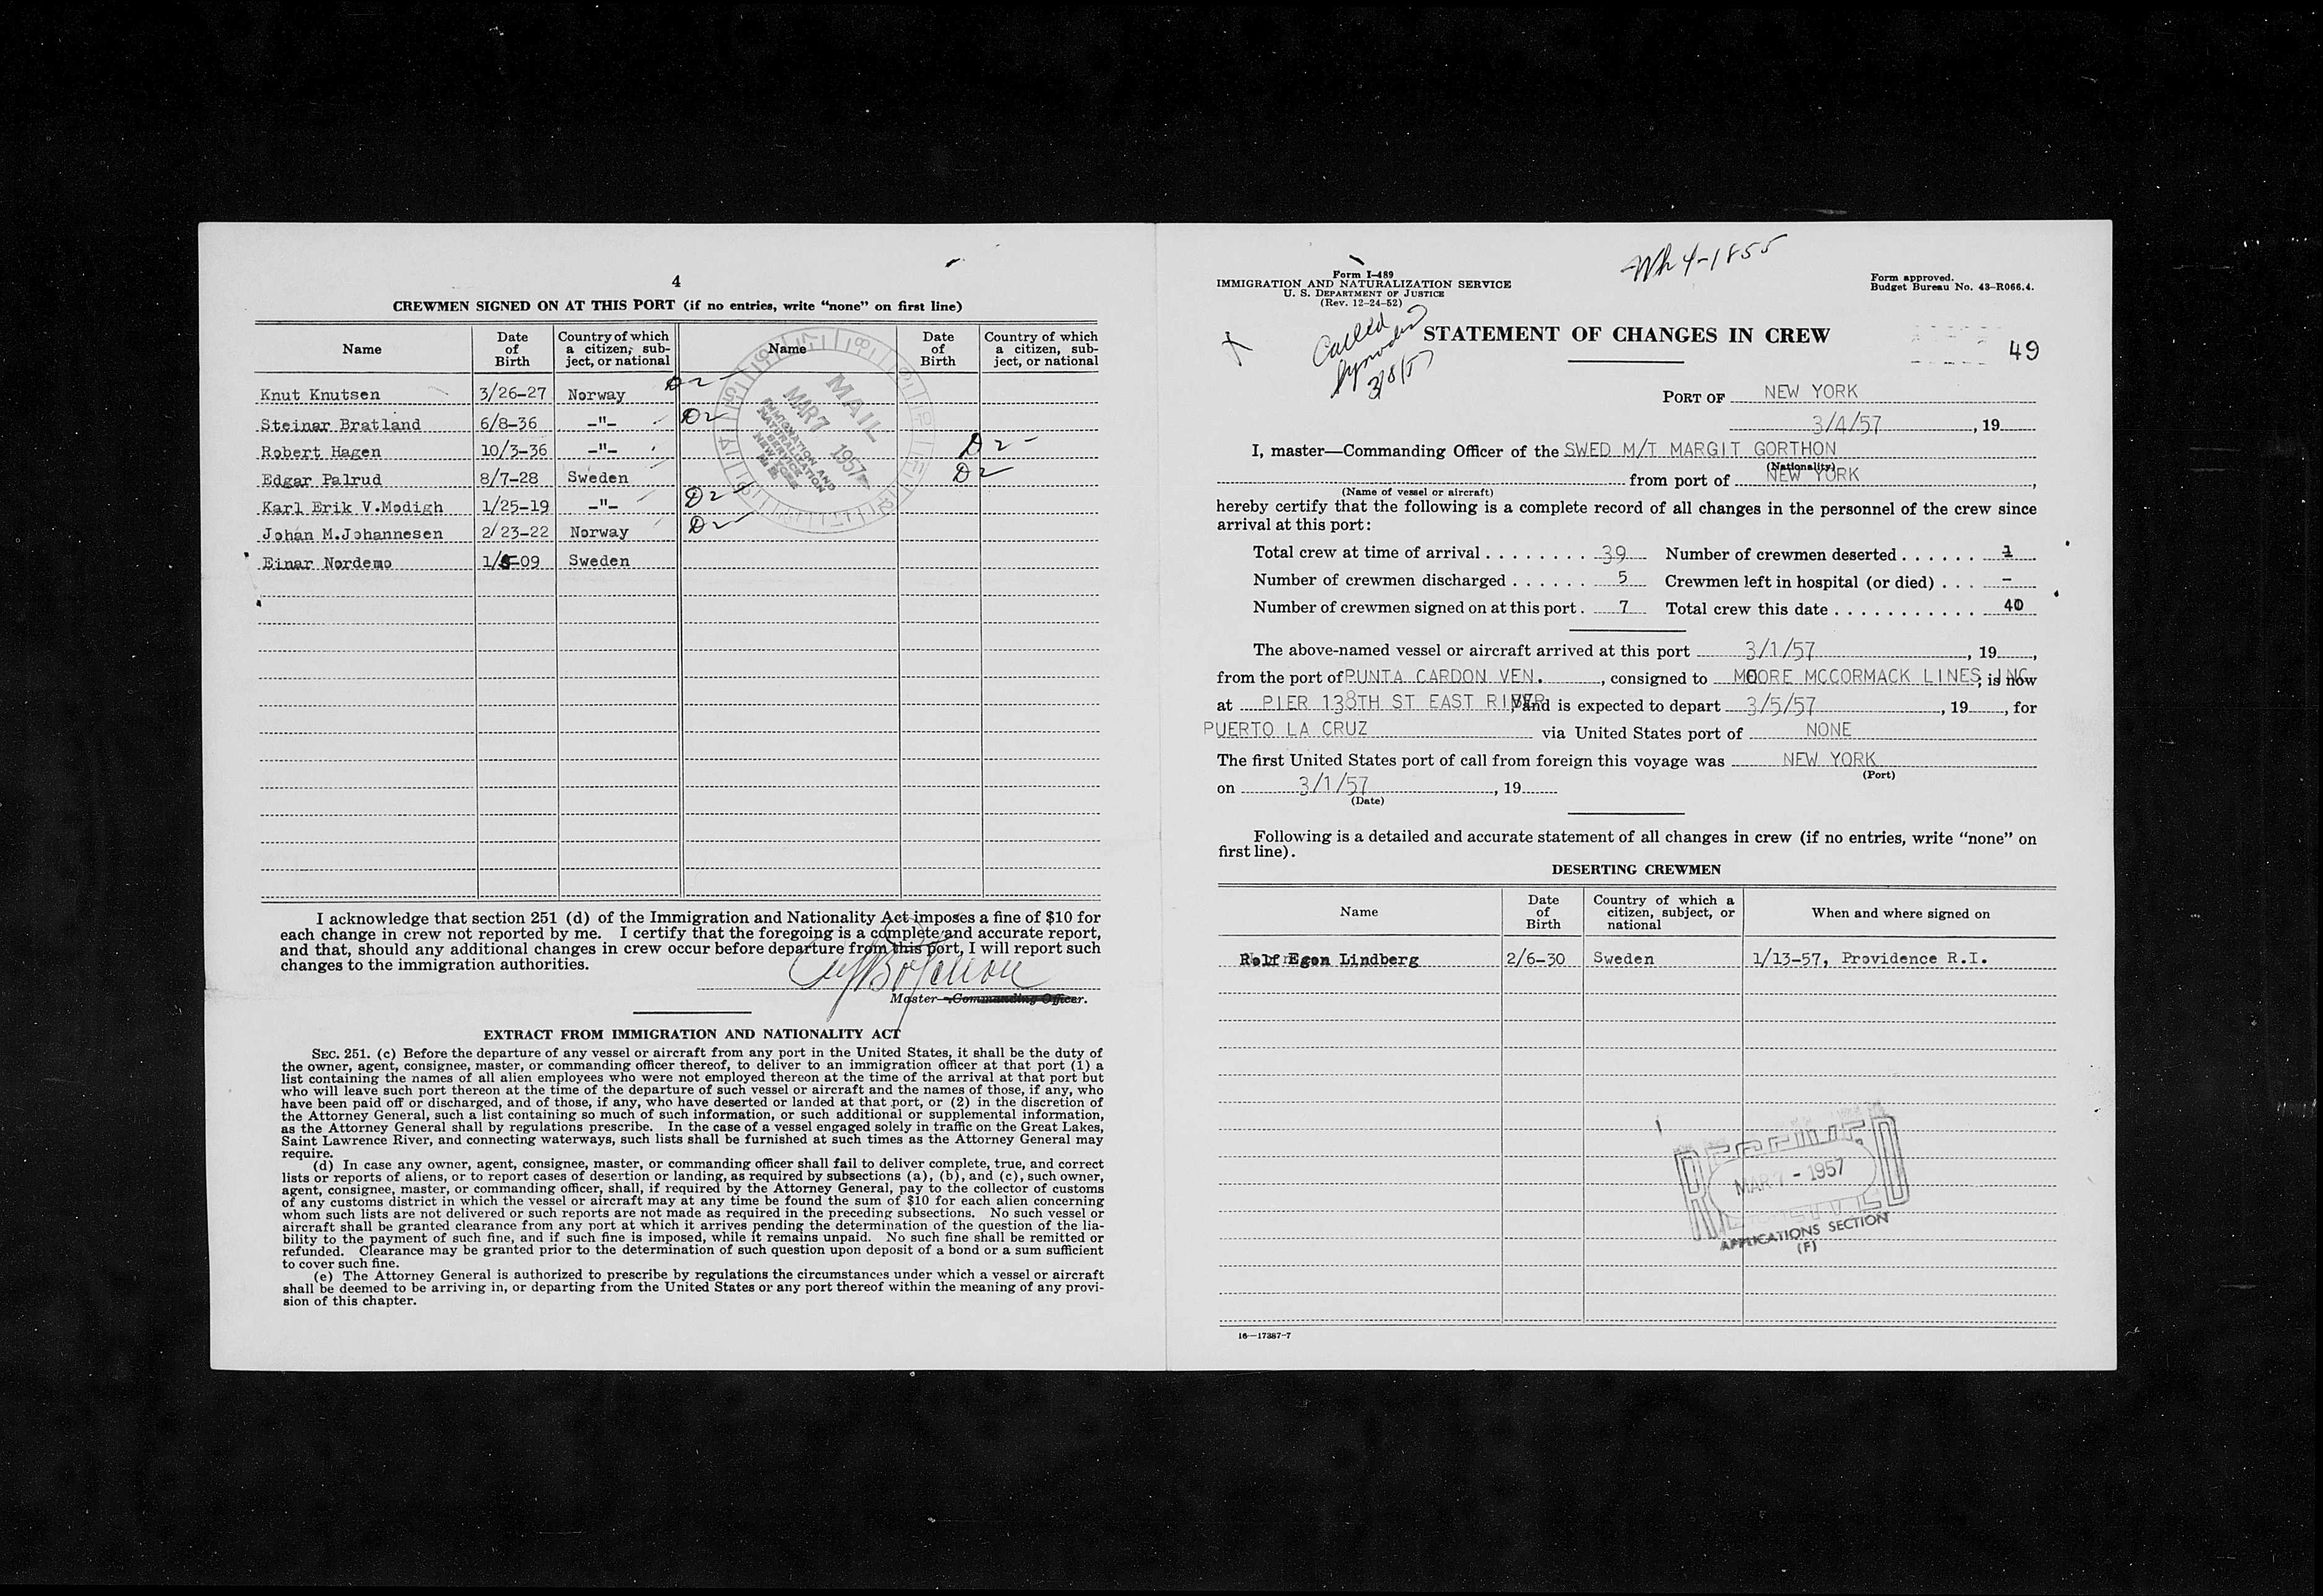 4
CREWMEN SIGNED ON AT THIS PORT (if no entries, write “none” on first line)
Name Date of Birth Country of which a citizen, sub-ject, or national Name Date of Birth Country of which a citizen, sub-ject, or national
Knut Knutsen 3/26-27 Norway D2
Steinar Bratland 6/8-36 -"- D2
Robert Hagen 10/3-36 -"- D2
Edgar Palrud 8/7-28 Sweden D2
Karl Erik V.Modigh 1/25-19 -"- D2
Johan M.Johannesen 2/23-22 Norway D2
Einar Nordemo 1/5-09 Sweden
MAIL
MAR 7 1957
IMMIGRATION AND
NATURALIZATION
SERVICE
NEW YORK
I acknowledge that section 251 (d) of the Immigration and Nationality Act imposes a fine of $10 for
each change in crew not reported by me. I certify that the foregoing is a complete and accurate report,
and that, should any additional changes in crew occur before departure from this port, I will report such
changes to the immigration authorities.
Master—Commanding Officer.
EXTRACT FROM IMMIGRATION AND NATIONALITY ACT
SEC. 251. (c) Before the departure of any vessel or aircraft from any port in the United States, it shall be the duty of
the owner, agent, consignee, master, or commanding officer thereof, to deliver to an immigration officer at that port (1) a
list containing the names of all alien employees who were not employed thereon at the time of the arrival at that port but
who will leave such port thereon at the time of the departure of such vessel or aircraft and the names of those, if any, who
have been paid off or discharged, and of those, if any, who have deserted or landed at that port, or (2) in the discretion of
the Attorney General, such a list containing so much of such information, or such additional or supplemental information,
as the Attorney General shall by regulations prescribe. In the case of a vessel engaged solely in traffic on the Great Lakes,
Saint Lawrence River, and connecting waterways, such lists shall be furnished at such times as the Attorney General may
require.
(d) In case any owner, agent, consignee, master, or commanding officer shall fail to deliver complete, true, and correct
lists or reports of aliens, or to report cases of desertion or landing, as required by subsections (a), (b), and (c), such owner,
agent, consignee, master, or commanding officer, shall, if required by the Attorney General, pay to the collector of customs
of any customs district in which the vessel or aircraft may at any time be found the sum of $10 for each alien concerning
whom such lists are not delivered or such reports are not made as required in the preceding subsections. No such vessel or
aircraft shall be granted clearance from any port at which it arrives pending the determination of the question of the lia-
bility to the payment of such fine, and if such fine is imposed, while it remains unpaid. No such fine shall be remitted or
refunded. Clearance may be granted prior to the determination of such question upon deposit of a bond or a sum sufficient
to cover such fine.
(e) The Attorney General is authorized to prescribe by regulations the circumstances under which a vessel or aircraft
shall be deemed to be arriving in, or departing from the United States or any port thereof within the meaning of any provi-
sion of this chapter.
Wh 4-1855
Form I-489
IMMIGRATION AND NATURALIZATION SERVICE
U. S. DEPARTMENT OF JUSTICE
(Rev. 12-24-52)
Form approved.
Budget Bureau No. 43-R066.4.
Called
3/8/57
STATEMENT OF CHANGES IN CREW
49
PORT OF NEW YORK
3/4/57, 19
I, master—Commanding Officer of the SWED M/T MARGIT GORTHON
(Nationality)
from port of NEW YORK,
(Name of vessel or aircraft)
hereby certify that the following is a complete record of all changes in the personnel of the crew since
arrival at this port:
Total crew at time of arrival . . . . . . . . 39 Number of crewmen deserted . . . . . . 1
Number of crewmen discharged . . . . . . 5 Crewmen left in hospital (or died) . . . -
Number of crewmen signed on at this port . 7 Total crew this date . . . . . . . . . . . 40
The above-named vessel or aircraft arrived at this port 3/1/57, 19,
from the port of PUNTA CARDON VEN., consigned to MOORE MCCORMACK LINES INC, is now
at PIER 138TH ST EAST RIVER and is expected to depart 3/5/57, 19, for
PUERTO LA CRUZ via United States port of NONE
The first United States port of call from foreign this voyage was NEW YORK
(Port)
on 3/1/57, 19
(Date)
Following is a detailed and accurate statement of all changes in crew (if no entries, write “none” on
first line).
DESERTING CREWMEN
Name Date of Birth Country of which a citizen, subject, or national When and where signed on
Rolf Egon Lindberg 2/6-30 Sweden 1/13-57, Providence R.I.
RECEIVED
MAR 7 - 1957
APPLICATIONS SECTION
(F)
16—17387-7